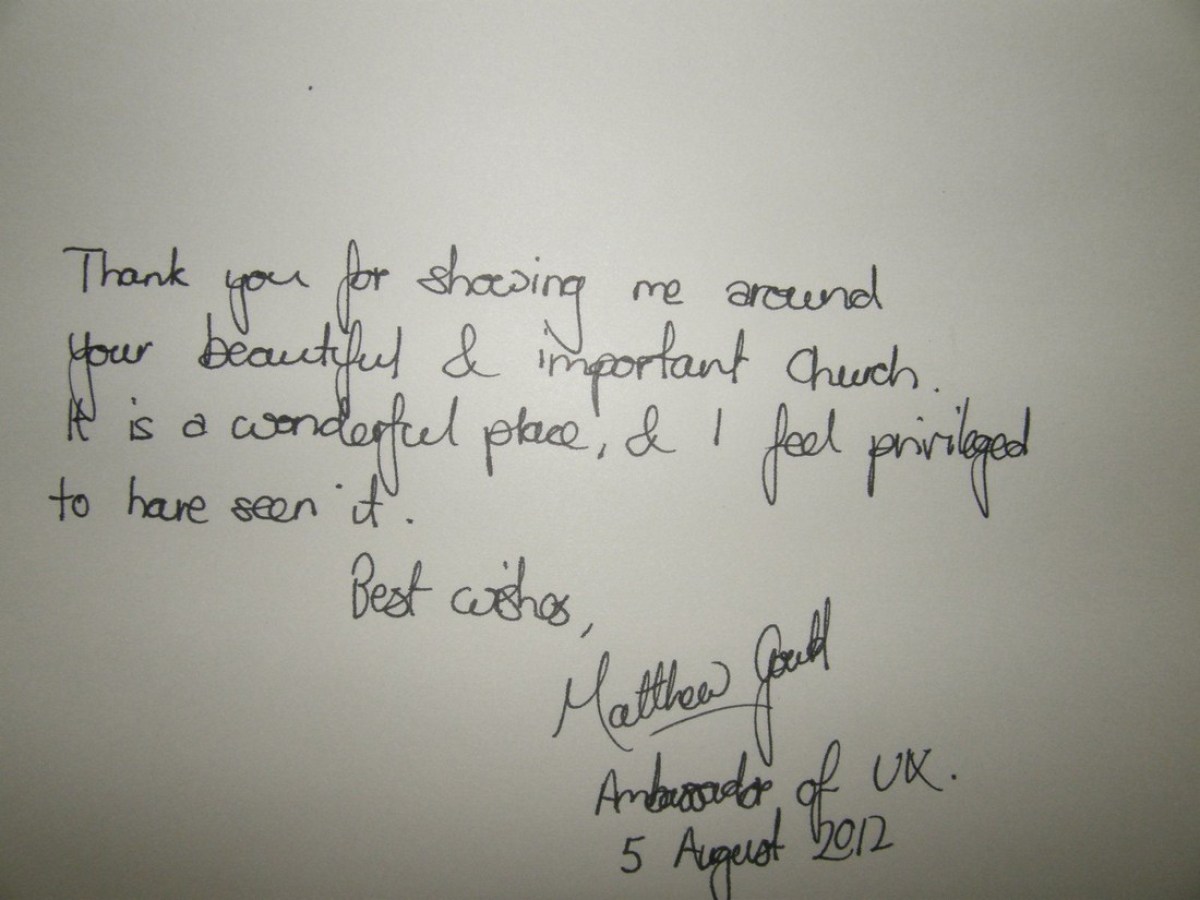 Thank you for showing me around
your beautiful & important Church.
It is a wonderful place, & I feel privileged
to have seen it.
Best wishes,
Matthew Gould
Ambassador of UK.
5 August 2012